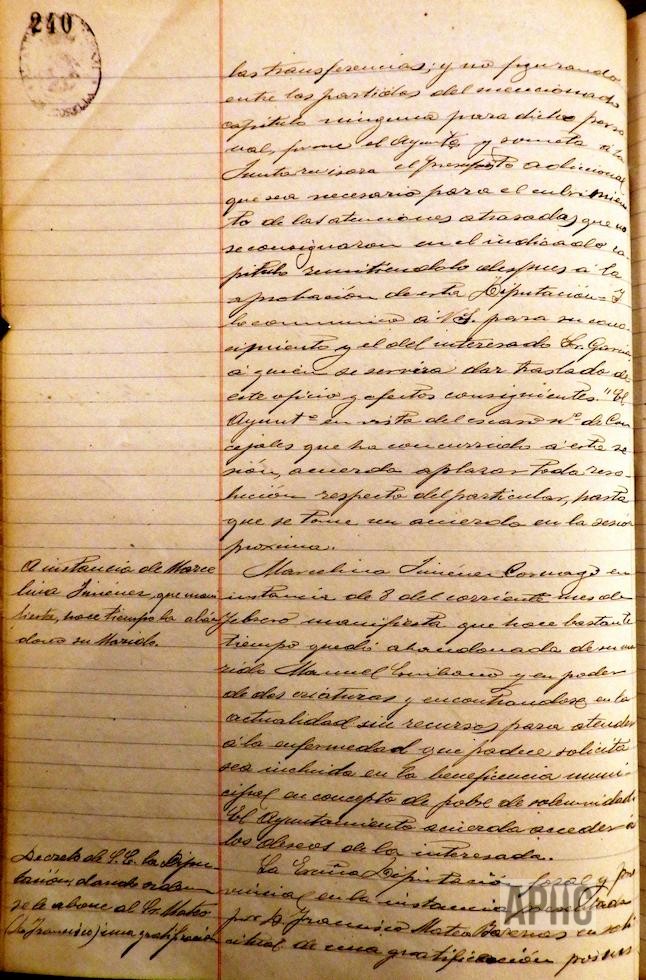 240
las transferencias; y no figurando
entre las partidas del mencionado
capitulo ninguna para dicho perso
nal, forme el Ayunto y someta á la
Junta revisora el presupto adicional
que sea necesario para el cubrimien
to de las atenciones atrasadas que no
se consignaron en el indicado ca
pitulo remitiendolo despues á la
aprobación de esta Diputación= Y
lo comunico á V.S. para su cono
cimiento y el del interesado Sr. Garcia
á quien se servirá dar traslado de
este oficio y efectos consiguientes." El
Ayuntº en vista del escaso nº de Con
cejales que ha concurrido á esta se
sión, acuerda aplazar toda reso
lución respecto del particular, hasta
que se tome un acuerdo en la sesión
proxima.
A instancia de Marce
lina Jiménez, que mani
fiesta, hace tiempo la aban
donó su Marido.
Marcelina Jiménez en
instancia de 8 del corriente mes de
febrero manifiesta que hace bastante
tiempo quedó abandonada de su ma
rido Manuel y en poder
de dos criaturas y encontrandose en la
actualidad sin recursos para atender
á la enfermedad que padece solicita
sea incluida en la beneficencia muni-
cipal en concepto de pobre de solemnidad.
El Ayuntamiento acuerda acceder á
los deseos de la interesada.
Decreto de S.E. la Dipu-
tación, dando orden
se le abone al Sr. Mateo
(Dn Francisco) una gratificación
La Excma Diputació foral y pro
vincial en la instancia presentada
por D. Francisco Mateo en soli
citud de una gratificación por sus
APHC